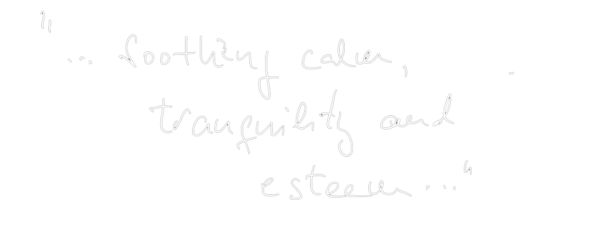 "... soothing calm,
tranquility and
esteem ..."